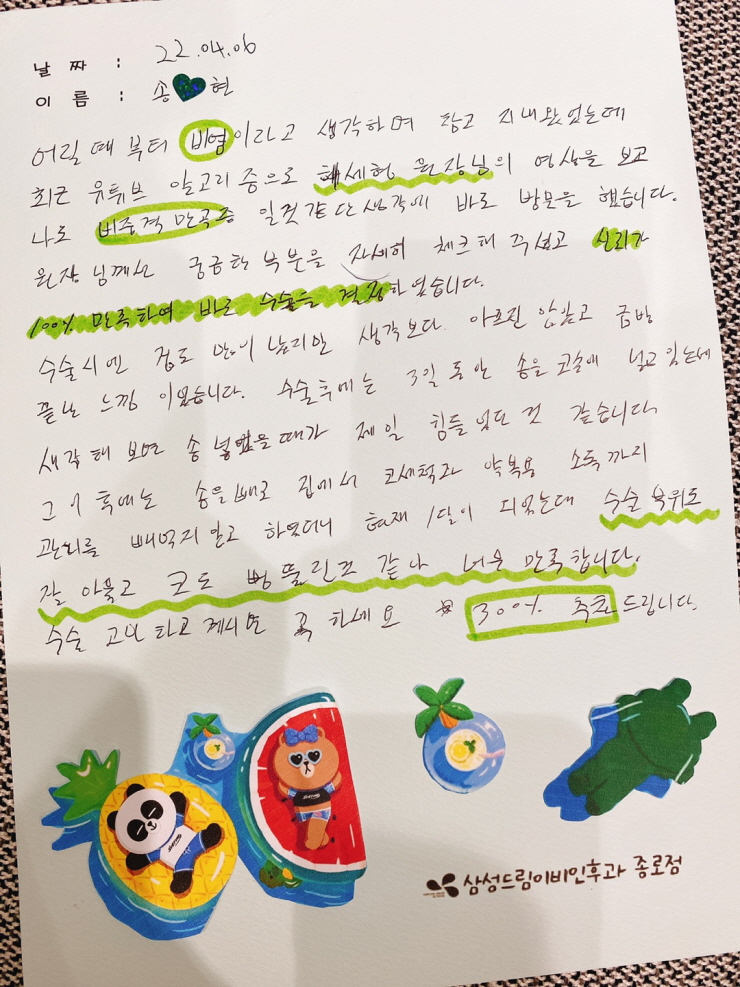 날 짜 : 22.04.06
이 름 : 송💚현
어릴 때 부터 비염이라고 생각하며 참고 지내왔었는데
최근 유튜브 알고리즘으로 세현 원장님의 영상을 보고
나도 비중격 만곡증 일것같단생각에 바로 방문을 했습니다.
원장님께선 궁금한 부분을 자세히 체크해 주셨고 신뢰가
100% 만족하여 바로 수술을 결정하였습니다.
수술시엔 겁도 많이 났지만 생각보다 아프진 않았고 금방
끝난 느낌 이었습니다. 수술후에는 3일 동안 솜을 코술에 넣고 있는데
생각해 보면 솜 넣었을때가 제일 힘들었던 것 같습니다.
그 이후에는 솜을 빼고 집에서 코세척과 약복용 소독까지
관리를 빼먹지 않고 하였더니 현재 1달이 되었는데 수술 부위도
잘 아물고 코도 뻥 뚤린것 같아 너무 만족합니다.
수술 고민 하고 계시면 꼭 하세요 300% 추천드립니다.
삼성드림이비인후과 종로점